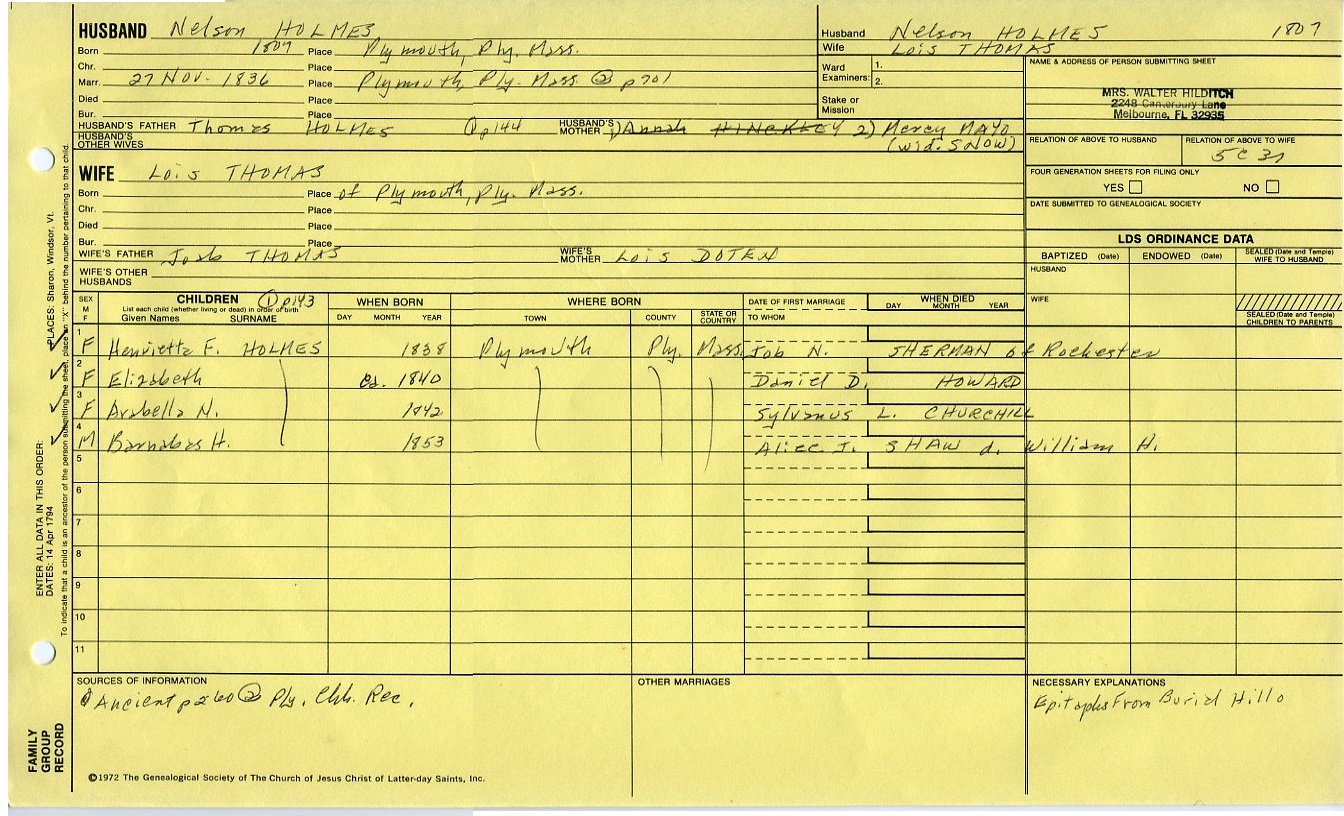 HUSBAND Nelson HOLMES
Born 1807 Place Plymouth, Ply. Mass.
Chr. Place
Marr. 27 Nov. 1836 Place Plymouth, Ply. Mass ② p701
Died Place
Bur. Place
HUSBAND'S FATHER Thomas HOLMES ① p144 HUSBAND'S MOTHER 1) Annah HINCKLEY 2) Mercy MAYO
HUSBAND'S OTHER WIVES (wid. SNOW)
Husband Nelson HOLMES 1807
Wife Lois THOMAS
Ward Examiners: 1.
2.
Stake or Mission
NAME & ADDRESS OF PERSON SUBMITTING SHEET
MRS. WALTER HILDITCH
2248 Canterbury Lane
Melbourne, FL 32935
RELATION OF ABOVE TO HUSBAND RELATION OF ABOVE TO WIFE
5C3r
FOUR GENERATION SHEETS FOR FILING ONLY
YES NO
DATE SUBMITTED TO GENEALOGICAL SOCIETY
WIFE Lois THOMAS
Born Place of Plymouth, Ply. Mass.
Chr. Place
Died Place
Bur. Place
WIFE'S FATHER THOMAS WIFE'S MOTHER Lois DOTEN
WIFE'S OTHER HUSBANDS
LDS ORDINANCE DATA
BAPTIZED (Date) ENDOWED (Date) SEALED (Date and Temple) WIFE TO HUSBAND
HUSBAND
WIFE
SEALED (Date and Temple) CHILDREN TO PARENTS
SEX M F CHILDREN ① p143 WHEN BORN WHERE BORN DATE OF FIRST MARRIAGE WHEN DIED
List each child (whether living or dead) in order of birth DAY MONTH YEAR
Given Names SURNAME DAY MONTH YEAR TOWN COUNTY STATE OR COUNTRY TO WHOM
1 F Henrietta F. HOLMES 1838 Plymouth Ply. Mass. Job N. SHERMAN of Rochester
2 F Elizabeth ca. 1840 Daniel D. HOWARD
3 F Arabella N. 1842 Sylvanus L. CHURCHILL
4 M Barnabas H. 1853 Alice J. SHAW d. William H.
5
6
7
8
9
10
11
SOURCES OF INFORMATION
① Ancient p260 ② Ply. Chh. Rec.
OTHER MARRIAGES
NECESSARY EXPLANATIONS
Epitaphs From Burial Hill
©1972 The Genealogical Society of The Church of Jesus Christ of Latter-day Saints, Inc.
FAMILY GROUP RECORD
ENTER ALL DATA IN THIS ORDER:
DATES: 14 Apr 1794
PLACES: Sharon, Windsor, Vt.
To indicate that a child is an ancestor of the person submitting the sheet, place an "X" behind the number pertaining to that child.